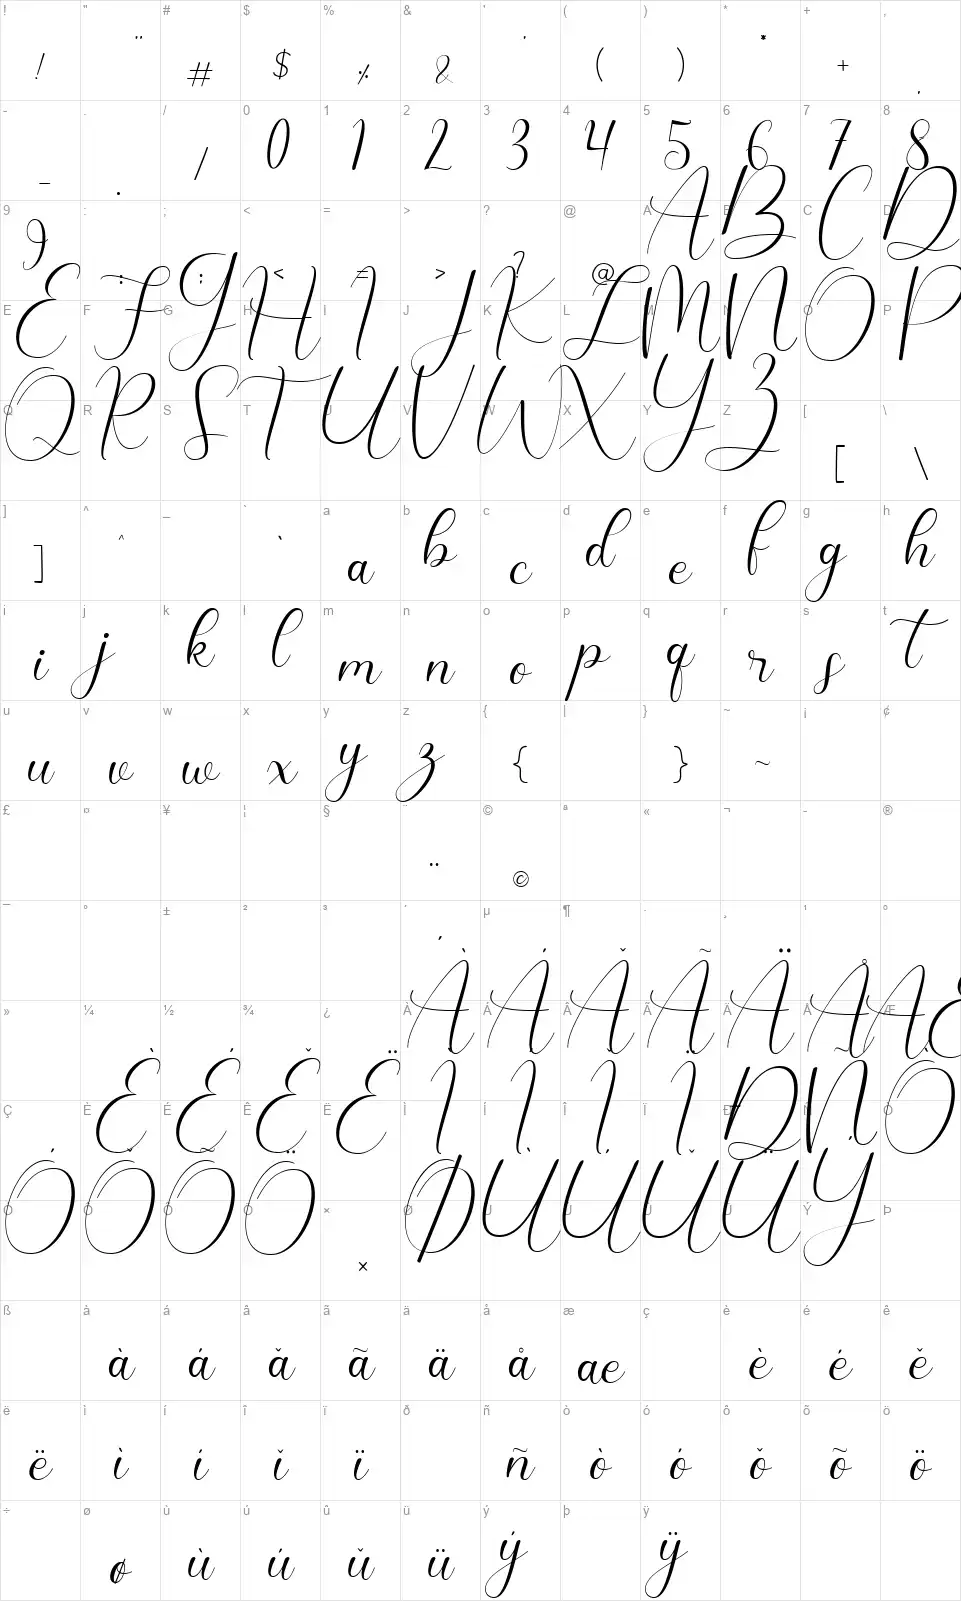 ! " # $ % & ' ( ) * + ,
! " # $ % & ' ( ) * + ,
- . / 0 1 2 3 4 5 6 7 8
- . / 0 1 2 3 4 5 6 7 8
9 : ; < = > ? @ A B C D
9 : ; < = > ? @ A B C D
E F G H I J K L M N O P
E F G H I J K L M N O P
Q R S T U V W X Y Z [ \
Q R S T U V W X Y Z [ \
] ^ _ ` a b c d e f g h
] ^ ` a b c d e f g h
i j k l m n o p q r s t
i j k l m n o p q r s t
u v w x y z { | } ~ ¡ ¢
u v w x y z { } ~
£ ¤ ¥ ¦ § ¨ © ª « ¬ - ®
¨ ©
¯ ° ± ² ³ ´ µ ¶ · ¸ ¹ º
´
» ¼ ½ ¾ ¿ À Á Â Ã Ä Å Æ
À Á Ǎ Ã Ä Å Æ
Ç È É Ê Ë Ì Í Î Ï Ð Ñ Ò
È É Ě Ë Ì Í Ǐ Ï Ð Ñ Ò
Ó Ô Õ Ö × Ø Ù Ú Û Ü Ý Þ
Ó Ǒ Õ Ö × Ø Ù Ú Ǔ Ü Ý
ß à á â ã ä å æ ç è é ê
à á ǎ ã ä å æ è é ě
ë ì í î ï ð ñ ò ó ô õ ö
ë ì í ǐ ï ñ ò ó ǒ õ ö
÷ ø ù ú û ü ý þ ÿ
ø ù ú ǔ ü ý ÿ